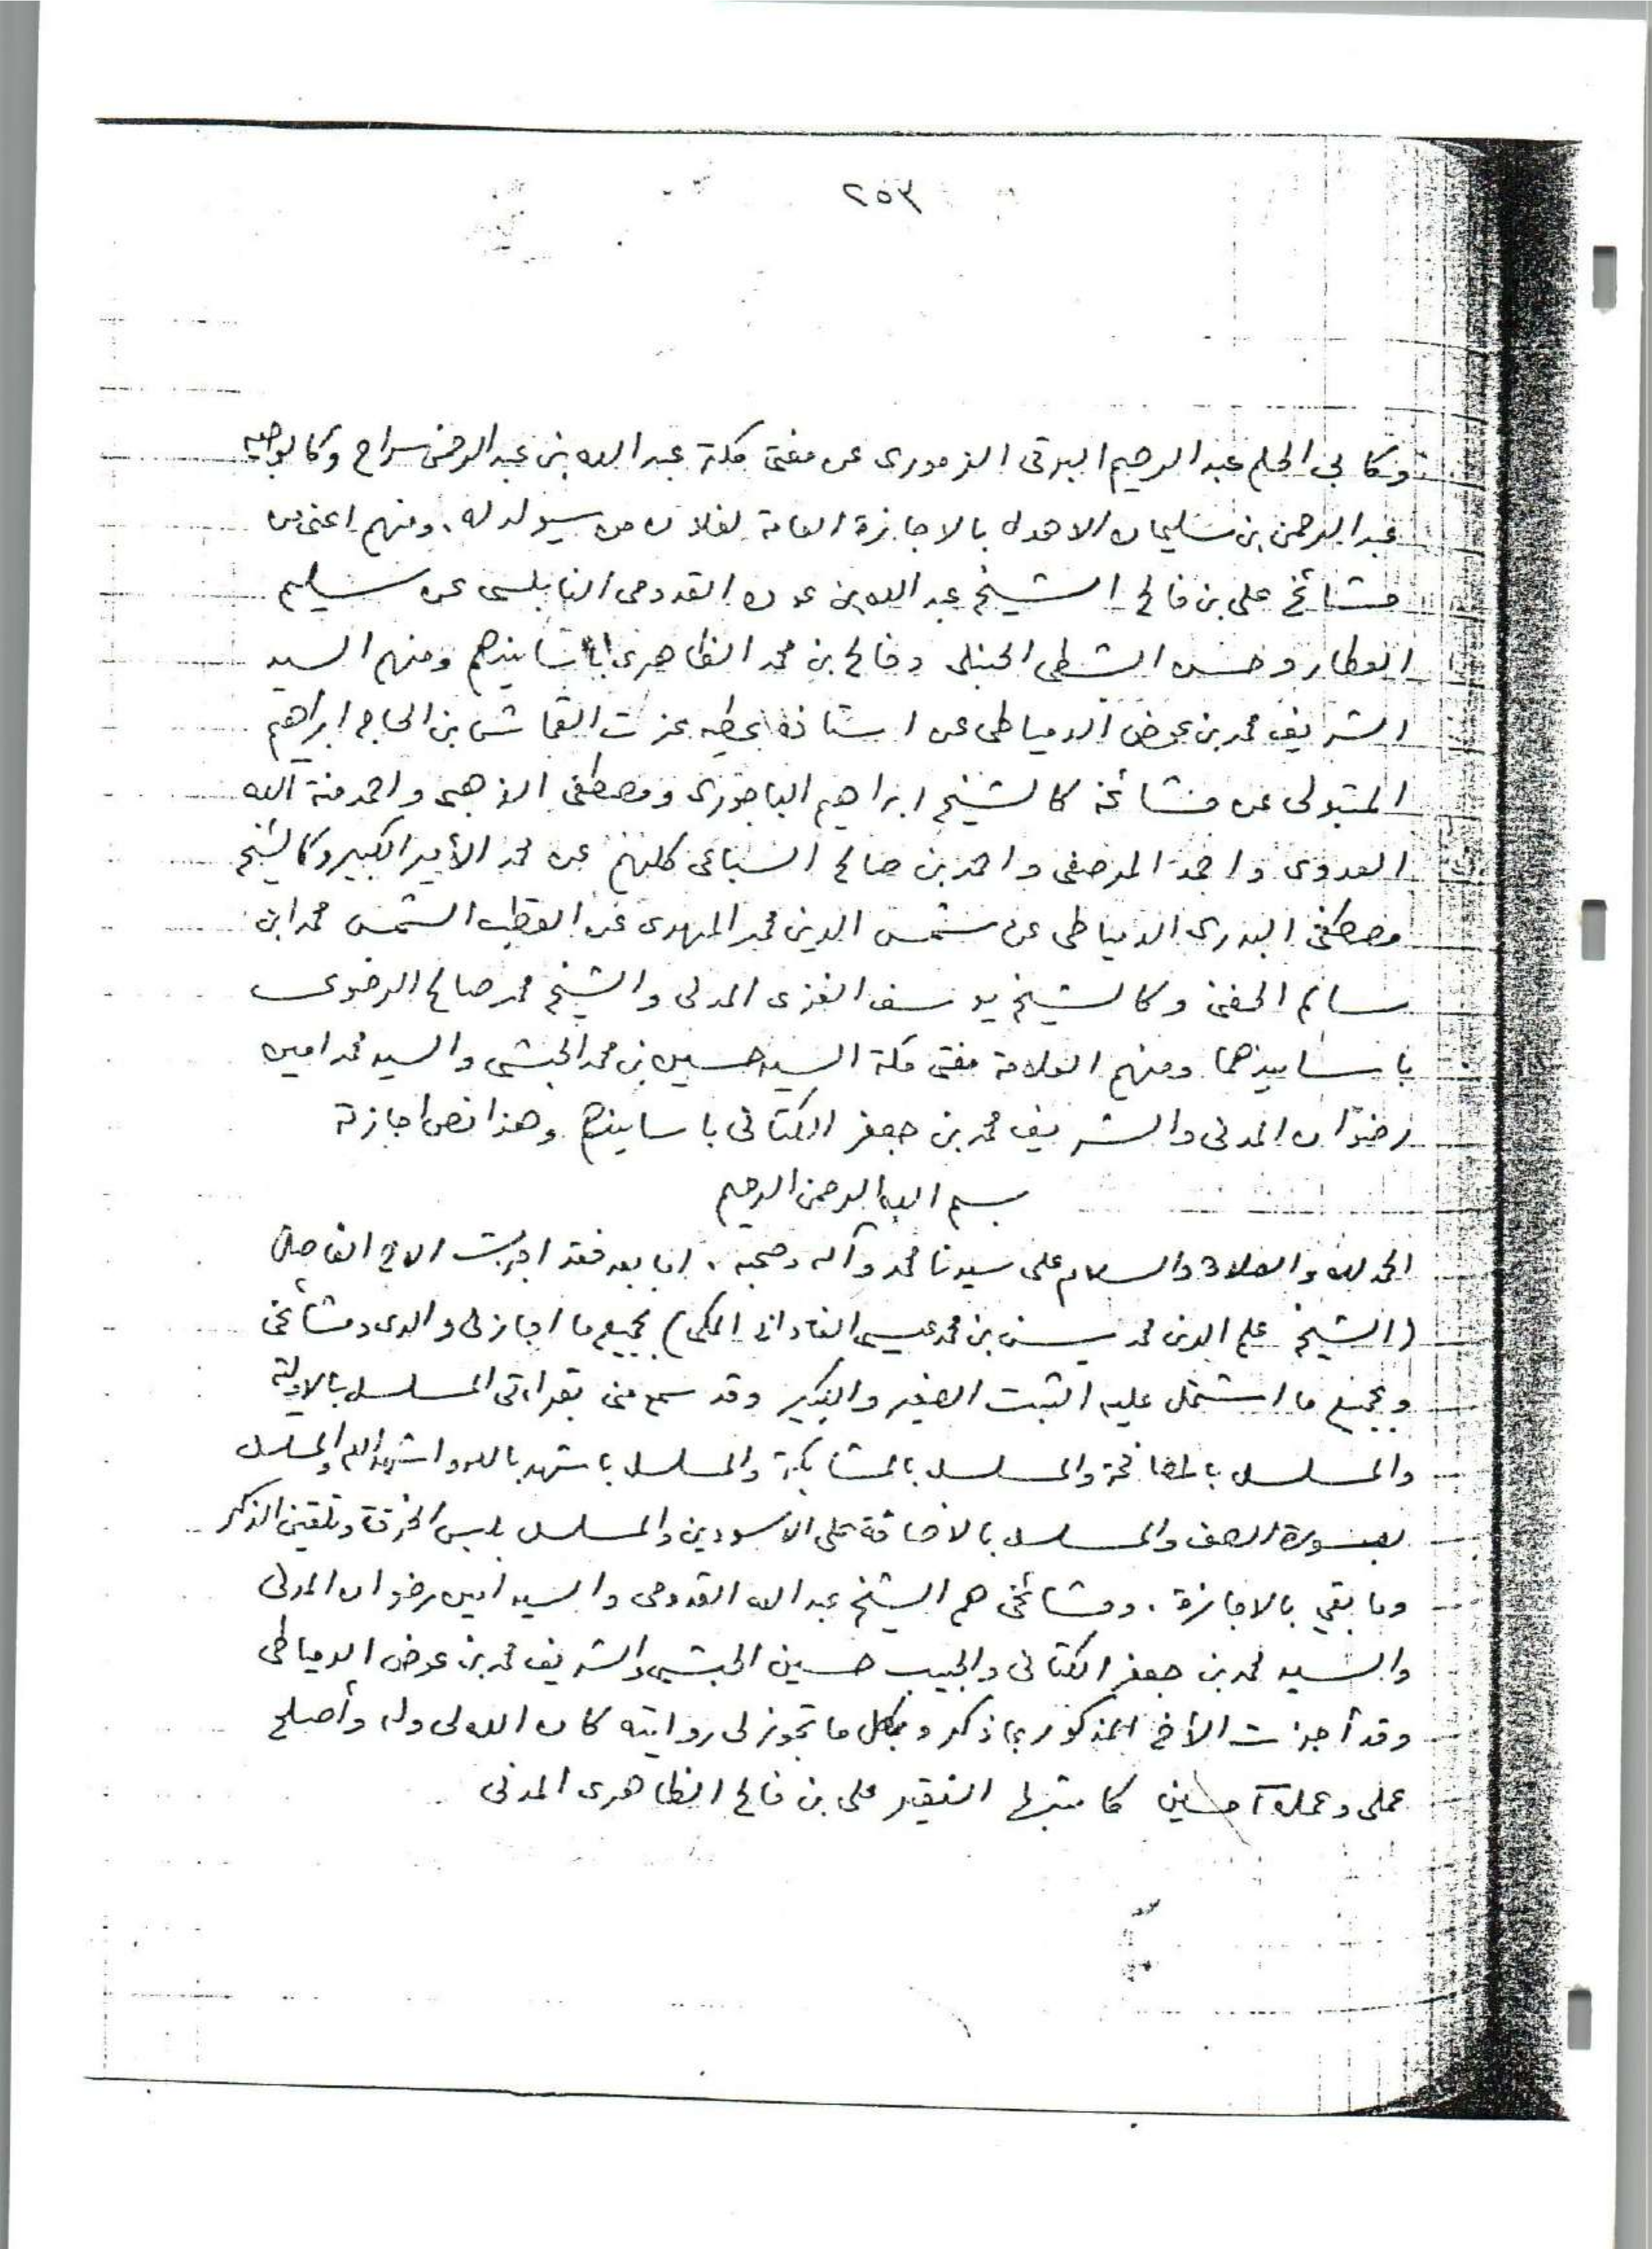 ٢٥٣
وكابي الحلم عبد الرحيم البرقى الزمورى عن مفتى مكة عبد الله بن عبد الرحمن سراج وكالوجيه
عبد الرحمن بن سليمان الاهدل بالاجازة العامة لفلان من سيولد له . ومنهم اعنى من
مشائخ على بن فالح الشيخ عبد الله بن عوده القدومى النابلسى عن سليم
العطار وحسن الشطى الحنبلى وفالح بن محمد الظاهرى باسانيدهم ومنهم السيد
الشريف محمد بن عوض الدمياطى عن استاذه عطيه عزت القماش بن الحاج ابراهيم
المتبولى عن مشائخه كالشيخ ابراهيم الباجورى ومصطفى الذهبى واحمد منة الله
العدوى واحمد المرصفى واحمد بن صالح السباعى كلهم عن محمد الأمير الكبير وكالشيخ
مصطفى البدرى الدمياطى عن شمس الدين محمد المهدى عن القطب الشمس محمد ابن
سالم الحفنى وكالشيخ يوسف الغزى المدنى والشيخ محمد صالح الرضوى
باسانيدهما ومنهم العلامة مفتى مكة السيد حسين بن محمد الحبشى والسيد محمد امين
رضوان المدنى والشريف محمد بن جعفر الكتانى باسانيدهم وهذا نص اجازته
بسم الله الرحمن الرحيم
الحمد لله والصلاة والسلام على سيدنا محمد وآله وصحبه ، اما بعد فقد اجزت الاخ الفاضل
(الشيخ علم الدين محمد يسن بن محمد عيسى الفادانى المكى) بجميع ما اجازنى والدى ومشائخى
وبجميع ما اشتمل عليه الثبت الصغير والكبير وقد سمع منى بقراءتى المسلسل بالاولية
والمسلسل بالمصافحة والمسلسل بالمشابكة والمسلسل باشهد بالله واشهد الله والمسلسل
بسورة الصف والمسلسل بالاضافة على الاسودين والمسلسل بلبس الخرقة وتلقين الذكر
وما بقي بالاجازة . ومشائخى هم الشيخ عبد الله القدومى والسيد امين رضوان المدنى
والسيد محمد بن جعفر الكتانى والحبيب حسين الحبشى والشريف محمد بن عوض الدمياطى
وقد أجزت الأخ المذكور بما ذكر وبكل ما تجوز لى روايته كان الله لى وله وأصلح
عملى وعمله آمين كاتبها الفقير على بن فالح الظاهرى المدنى